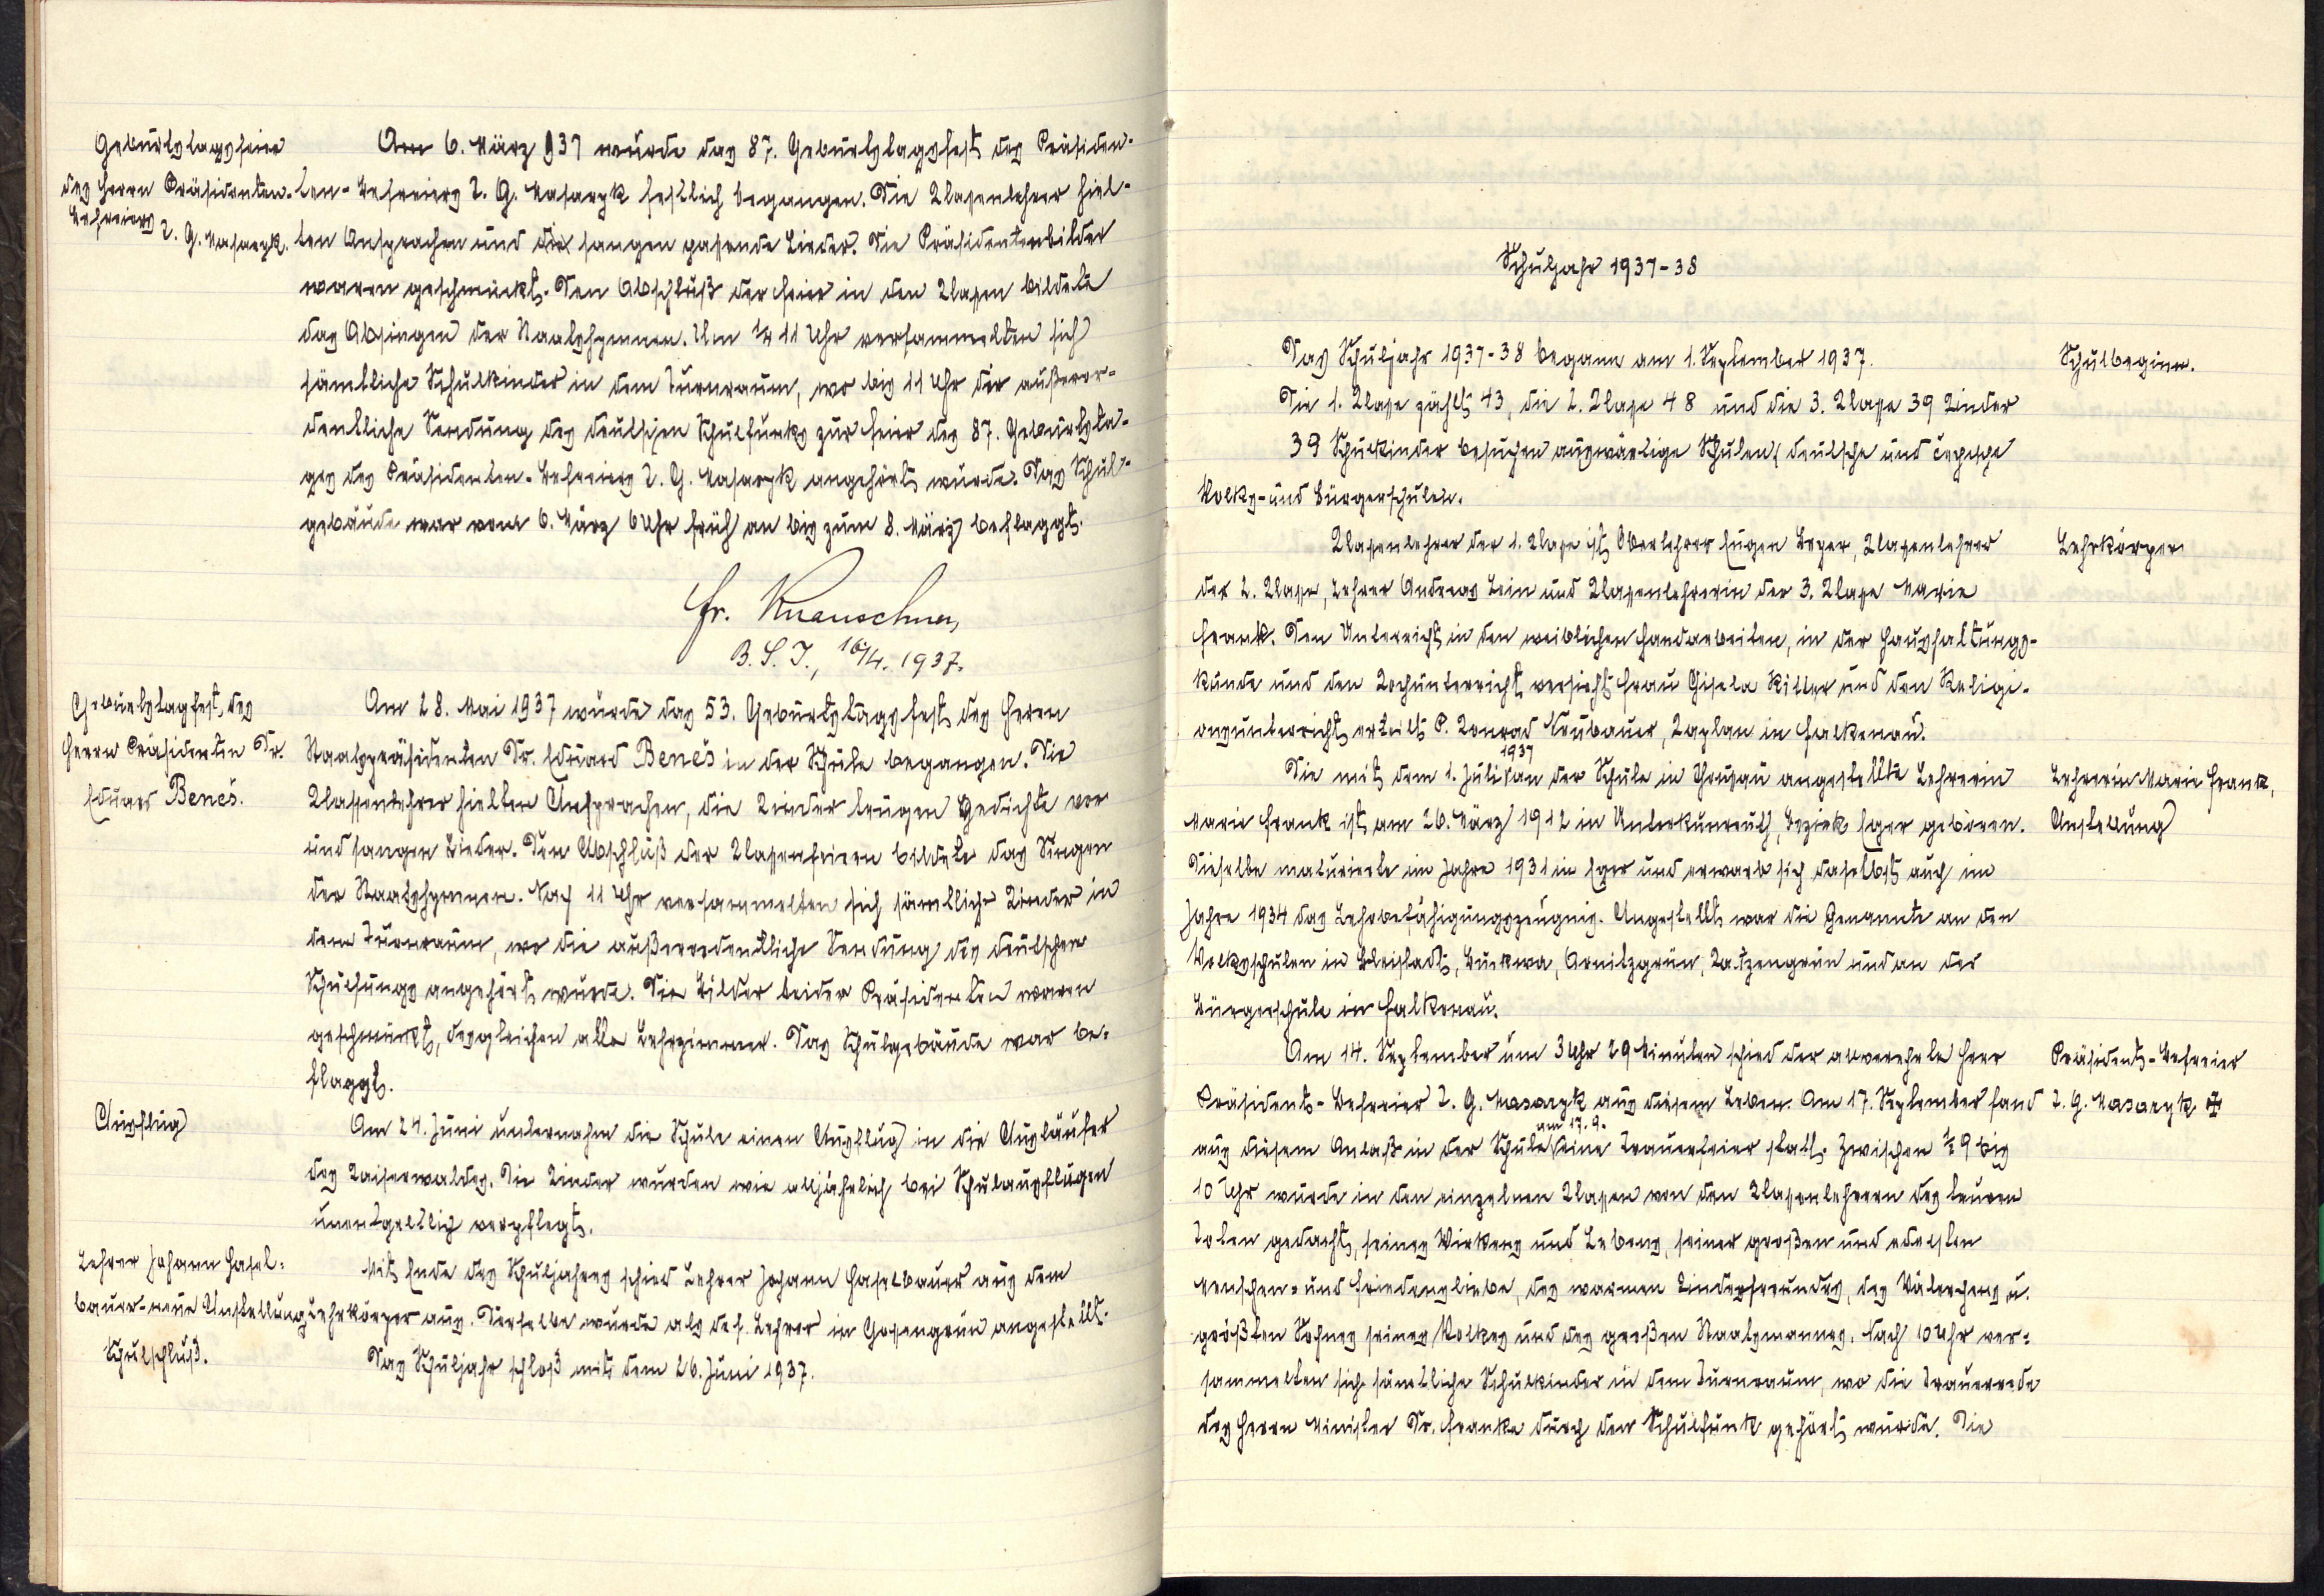 Geburtstagsfeier
des Herrn Präsidenten-
Befreiers T. G. Masaryk.
Am 6. März 937 wurde das 87. Geburtstagsfest des Präsiden-
ten-Befreiers T. G. Masaryk festlich begangen. Die Klassenlehrer hiel-
ten Ansprachen und die sangen passende Lieder. Die Präsidentenbilder
waren geschmückt. Den Abschluß der Feier in den Klassen bildete
das Absingen der Staatshymnen. Um ½ 11 Uhr versammelten sich
sämtliche Schulkinder in dem Turnraum, wo bis 11 Uhr die außeror-
dentliche Sendung des deutschen Schulfunks zur Feier des 87. Geburtsta-
ges des Präsidenten-Befreiers T. G. Masaryk angehört wurde. Das Schul-
gebäude war vom 6. März 6 Uhr früh an bis zum 8. März beflaggt.
Fr. Knauschner,
B. S. I., 16/4. 1937.
Geburtstagfest des
Herrn Präsidenten Dr.
Eduard Beneš.
Am 28. Mai 1937 wurde das 53. Geburtstagsfest des Herrn
Staatspräsidenten Dr. Eduard Beneš in der Schule begangen. Die
Klassenlehrer hielten Ansprachen, die Kinder trugen Gedichte vor
und sangen Lieder. Den Abschluß der Klassenfeiern bildete das Singen
der Staatshymnen. Nach 11 Uhr versammelten sich sämtliche Kinder in
dem Turnraum, wo die außerordentliche Sendung des deutschen
Schulfungs angehört wurde. Die Bilder beider Präsidenten waren
geschmückt, desgleichen alle Lehrzimmer. Das Schulgebäude war be-
flaggt.
Ausflug
Am 24. Juni unternahm die Schule einen Ausflug in die Ausläufer
des Kaiserwaldes. Die Kinder wurden wie alljährlich bei Schulausflügen
unentgeltlich verpflegt.
Lehrer Johann Hasel-
bauer-neue Anstellung
Mit Ende des Schuljahres schied Lehrer Johann Haselbauer aus dem
Lehrkörper aus. Derselbe wurde als def. Lehrer in Gossengrün angestellt.
Schulschluß.
Das Schuljahr schloß mit dem 26. Juni 1937.
Schuljahr 1937-38
Das Schuljahr 1937-38 begann am 1. September 1937.
Schulbeginn.
Die 1. Klasse zählt 43, die 2. Klasse 48 und die 3. Klasse 39 Kinder
39 Schulkinder besuchen auswärtige Schulen, deutsche und čechische
Volks- und Bürgerschulen.
Klassenlehrer der 1. Klasse ist Oberlehrer Eugen Beyer, Klassenlehrer
Lehrkörper
der 2. Klasse, Lehrer Andreas Lein und Klassenlehrerin der 3. Klasse Marie
Frank. Den Unterricht in den weiblichen Handarbeiten, in der Haushaltungs-
kunde und den Kochunterricht versieht Frau Gisela Ritter und den Religi-
onsunterricht erteilt P. Konrad Neubauer, Kaplan in Falkenau.
1937
Die mit dem 1. Juli an der Schule in angestellte Lehrerin
Lehrerin Marie Frank,
Anstellung
Marie Frank ist am 26. März 1912 in Unterkunreuth, Bezirk Eger geboren.
Dieselbe maturierte im Jahre 1931 in Eger und erwarb sich daselbst auch im
Jahre 1934 das Lehrbefähigungszeugnis. Angestellt war die Genannte an den
Volksschulen in Bleistadt, Buckwa, Arnitzgrün, Katzengrün und an der
Bürgerschule in Falkenau.
Am 14. September um 3 Uhr 29 Minuten schied der allverehrte Herr
Präsident-Befreier
T. G. Masaryk ✠
Präsident-Befreier T. G. Masaryk aus diesem Leben. Am 17. September fand
am 17. 9.
aus diesem Anlaß in der Schule eine Trauerfeier statt. Zwischen ½ 9 bis
10 Uhr wurde in den einzelnen Klassen von den Klassenlehrern des teuren
Toten gedacht, seines Wirkens und Lebens, seiner großen und edelsten
Menschen- und Friedensliebe, des warmen Kinderfreundes, des Väterchens u.
größten Sohnes seines Volkes und des großen Staatsmannes. Nach 10 Uhr ver-
sammelten sich sämtliche Schulkinder in dem Turnraum, wo die Trauerrede
des Herrn Minister Dr. Franke durch den Schulfunk gehört wurde. Die